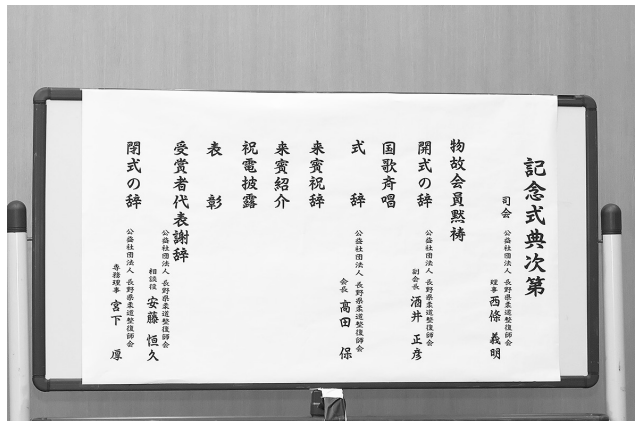 記念式典次第
司会 公益社団法人 長野県柔道整復師会
理事 西條 義明
物故会員黙祷
開式の辞 公益社団法人 長野県柔道整復師会
副会長 酒井 正彦
国歌斉唱
式 辞 公益社団法人 長野県柔道整復師会
会長 高田 保
来賓祝辞
来賓紹介
祝電披露
表 彰
受賞者代表謝辞 公益社団法人 長野県柔道整復師会
相談役 安藤 恒久
閉式の辞 公益社団法人 長野県柔道整復師会
専務理事 宮下 厚